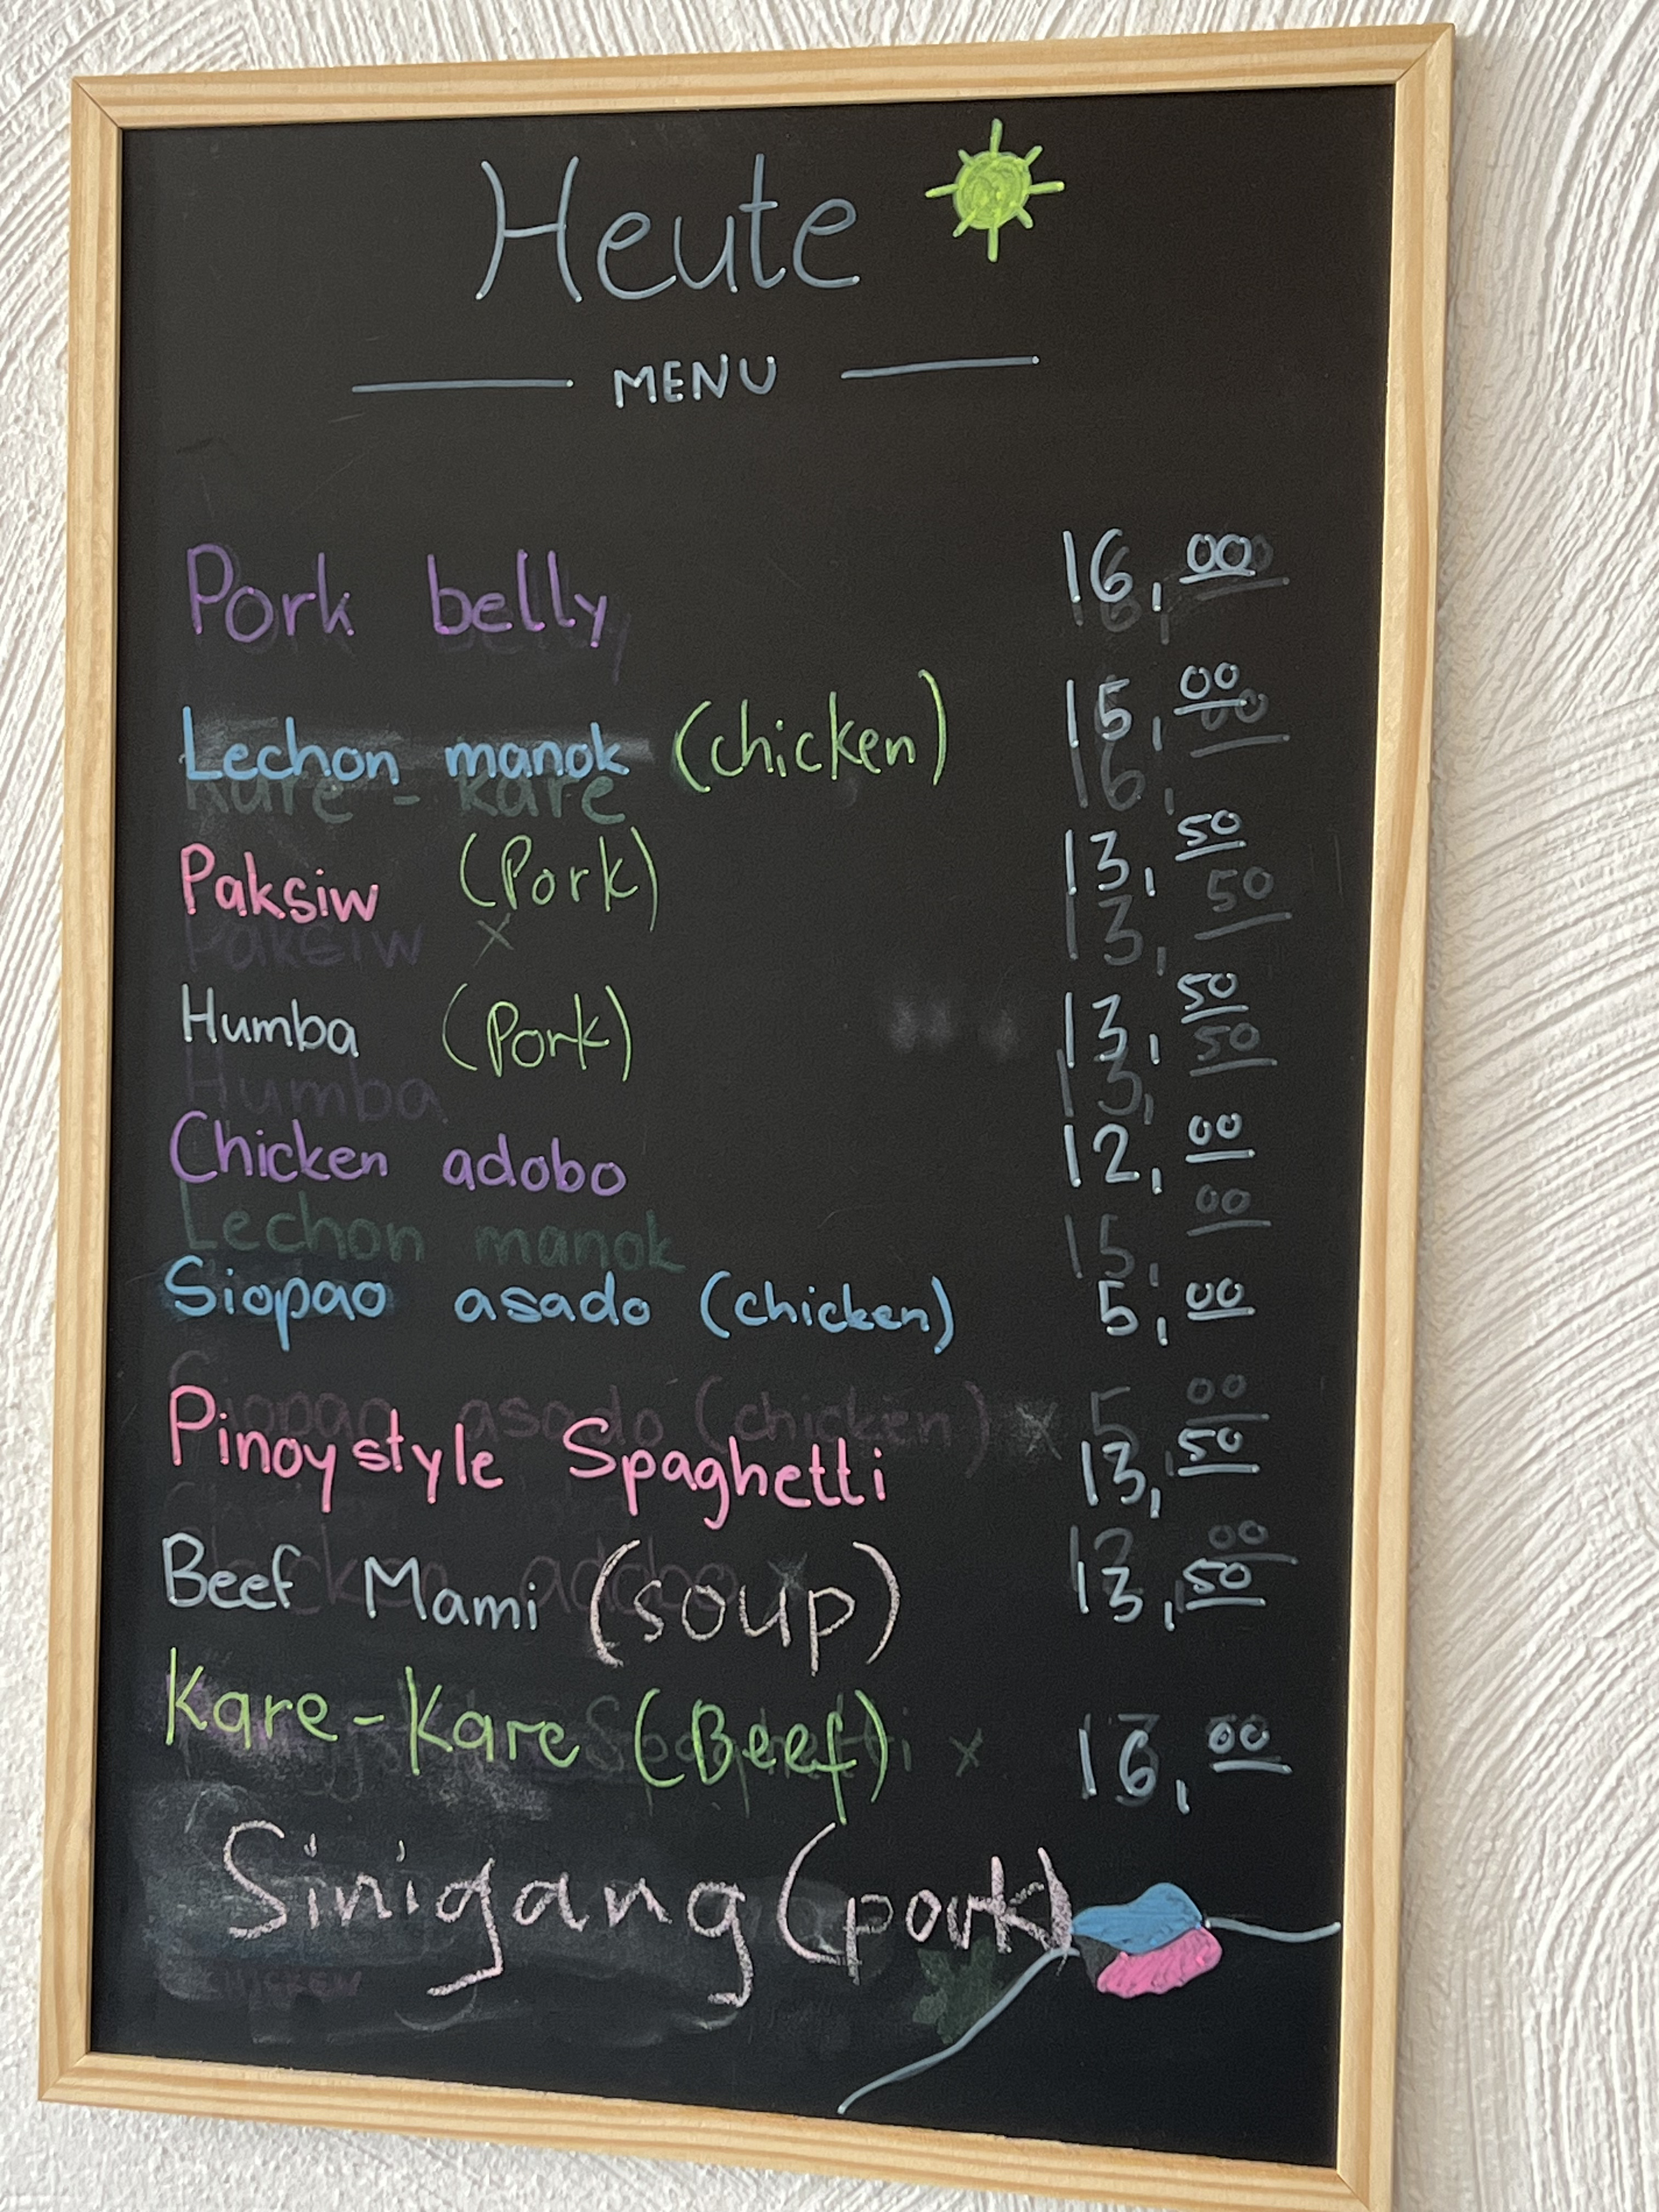 Heute
MENU
Pork belly 16,00
Lechon manok (chicken) 15,00
Paksiw (Pork) 13,50
Humba (Pork) 13,50
Chicken adobo 12,00
Siopao asado (chicken) 5,00
Pinoy style Spaghetti 13,50
Beef Mami (soup) 13,50
Kare-Kare (Beef) 16,00
Sinigang (pork)